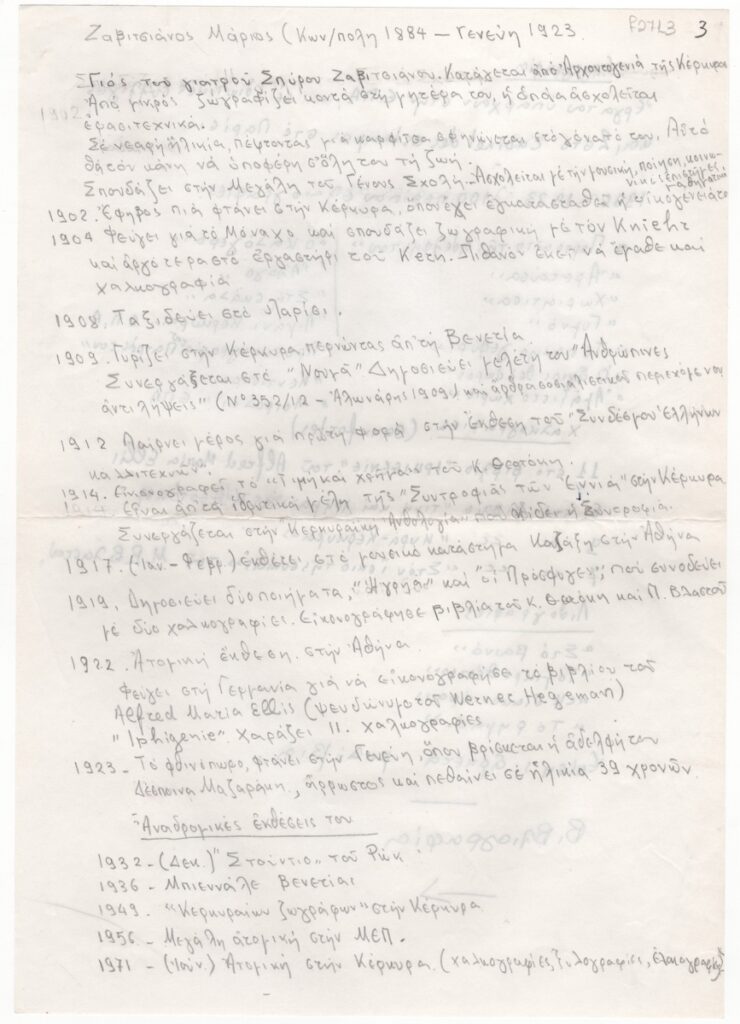 P27L3 3
Ζαβιτσιάνος Μάριος (Κων/πολη 1884 – Γενεύη 1923
Γιός του γιατρού Σπύρου Ζαβιτσιάνου. Κατάγεται από Αρχοντογενιά της Κέρκυρας
Από μικρός ζωγραφίζει κοντά στη μητέρα του, ή οποία ασχολείται
ερασιτεχνικά.
Σε νεαρή ηλικία, πέφτοντας μια καρφίτσα σφηνώνεται στο γόνατό του. Αυτό
θα τον κάνη να υποφέρη σ' όλη του τη ζωή.
Σπουδάζει στην Μεγάλη του Γένους Σχολή. Ασχολείται με την μουσική, ποίηση, κοινω-
νικές επιστήμες, μαθηματικά
1902. Έφηβος πιά φτάνει στην Κέρκυρα, όπου έχει εγκατασταθεί ή οικογένειά του
1904 Φεύγει για το Μόναχο και σπουδάζει ζωγραφική με τον Knirr
και αργότερα στο εργαστήρι του Kern. Πιθανός εκεί να έμαθε και
χαλκογραφία
1908. Ταξιδεύει στο Παρίσι.
1909. Γυρίζει στην Κέρκυρα, περνώντας απ' τη Βενετία
Συνεργάζεται στο "Νουμά" Δημοσιεύει μελέτη του "Ανθρώπινες
αντιλήψεις" (Νο 352/12 – Αλωνάρης 1909) και άρθρα σοσιαλιστικού περιεχόμενου
1912 Παίρνει μέρος για πρώτη φορά στην έκθεση του "Συνδέσμου Ελλήνων
καλλιτεχνών"
1914. Εικονογραφεί το "Τιμή και χρήμα" του Κ. Θεοτόκη.
Είναι απ' τα ιδρυτικά μέλη της "Συντροφιάς των Εννιά" στην Κέρκυρα
Συνεργάζεται στην "Κερκυραϊκή Ανθολογία" που εκδίδει ή Συντροφιά.
1917. (Ιαν. – Φεβρ.) εκθέτει στο μουσικό κατάστημα Καζάζη στην Αθήνα
1919. Δημοσιεύει δύο ποιήματα, και "οι Πρόσφυγες", που συνοδεύει
με δύο χαλκογραφίες. Εικονογράφησε βιβλία του Κ. Θεοτόκη και Π. Βλαστού
1922. Ατομική έκθεση στην Αθήνα.
Φεύγει στη Γερμανία για να εικονογραφήσε το βιβλίου του
Alfred Maria Ellis (ψευδώνυμο του Werner Hegeman)
"Iphigenie". Χαράζει 11. χαλκογραφίες
1923 – Το φθινόπωρο, φτάνει στην Γενεύη, όπου βρίσκεται ή αδελφή του
Δέσποινα Μαζαράκη, άρρωστος και πεθαίνει σε ηλικία 39 χρονών.
Αναδρομικές εκθέσεις του
1932 – (Δεκ.) "Στούντιο" του Ρώκ
1936 – Μπιεννάλε Βενετίας
1949. "Κερκυραίων ζωγράφων" στην Κέρκυρα
1956 – Μεγάλη ατομική στην ΜΕΠ.
1971 – (Ιούν.) Ατομική στην Κέρκυρα. (χαλκογραφίες, ξυλογραφίες,